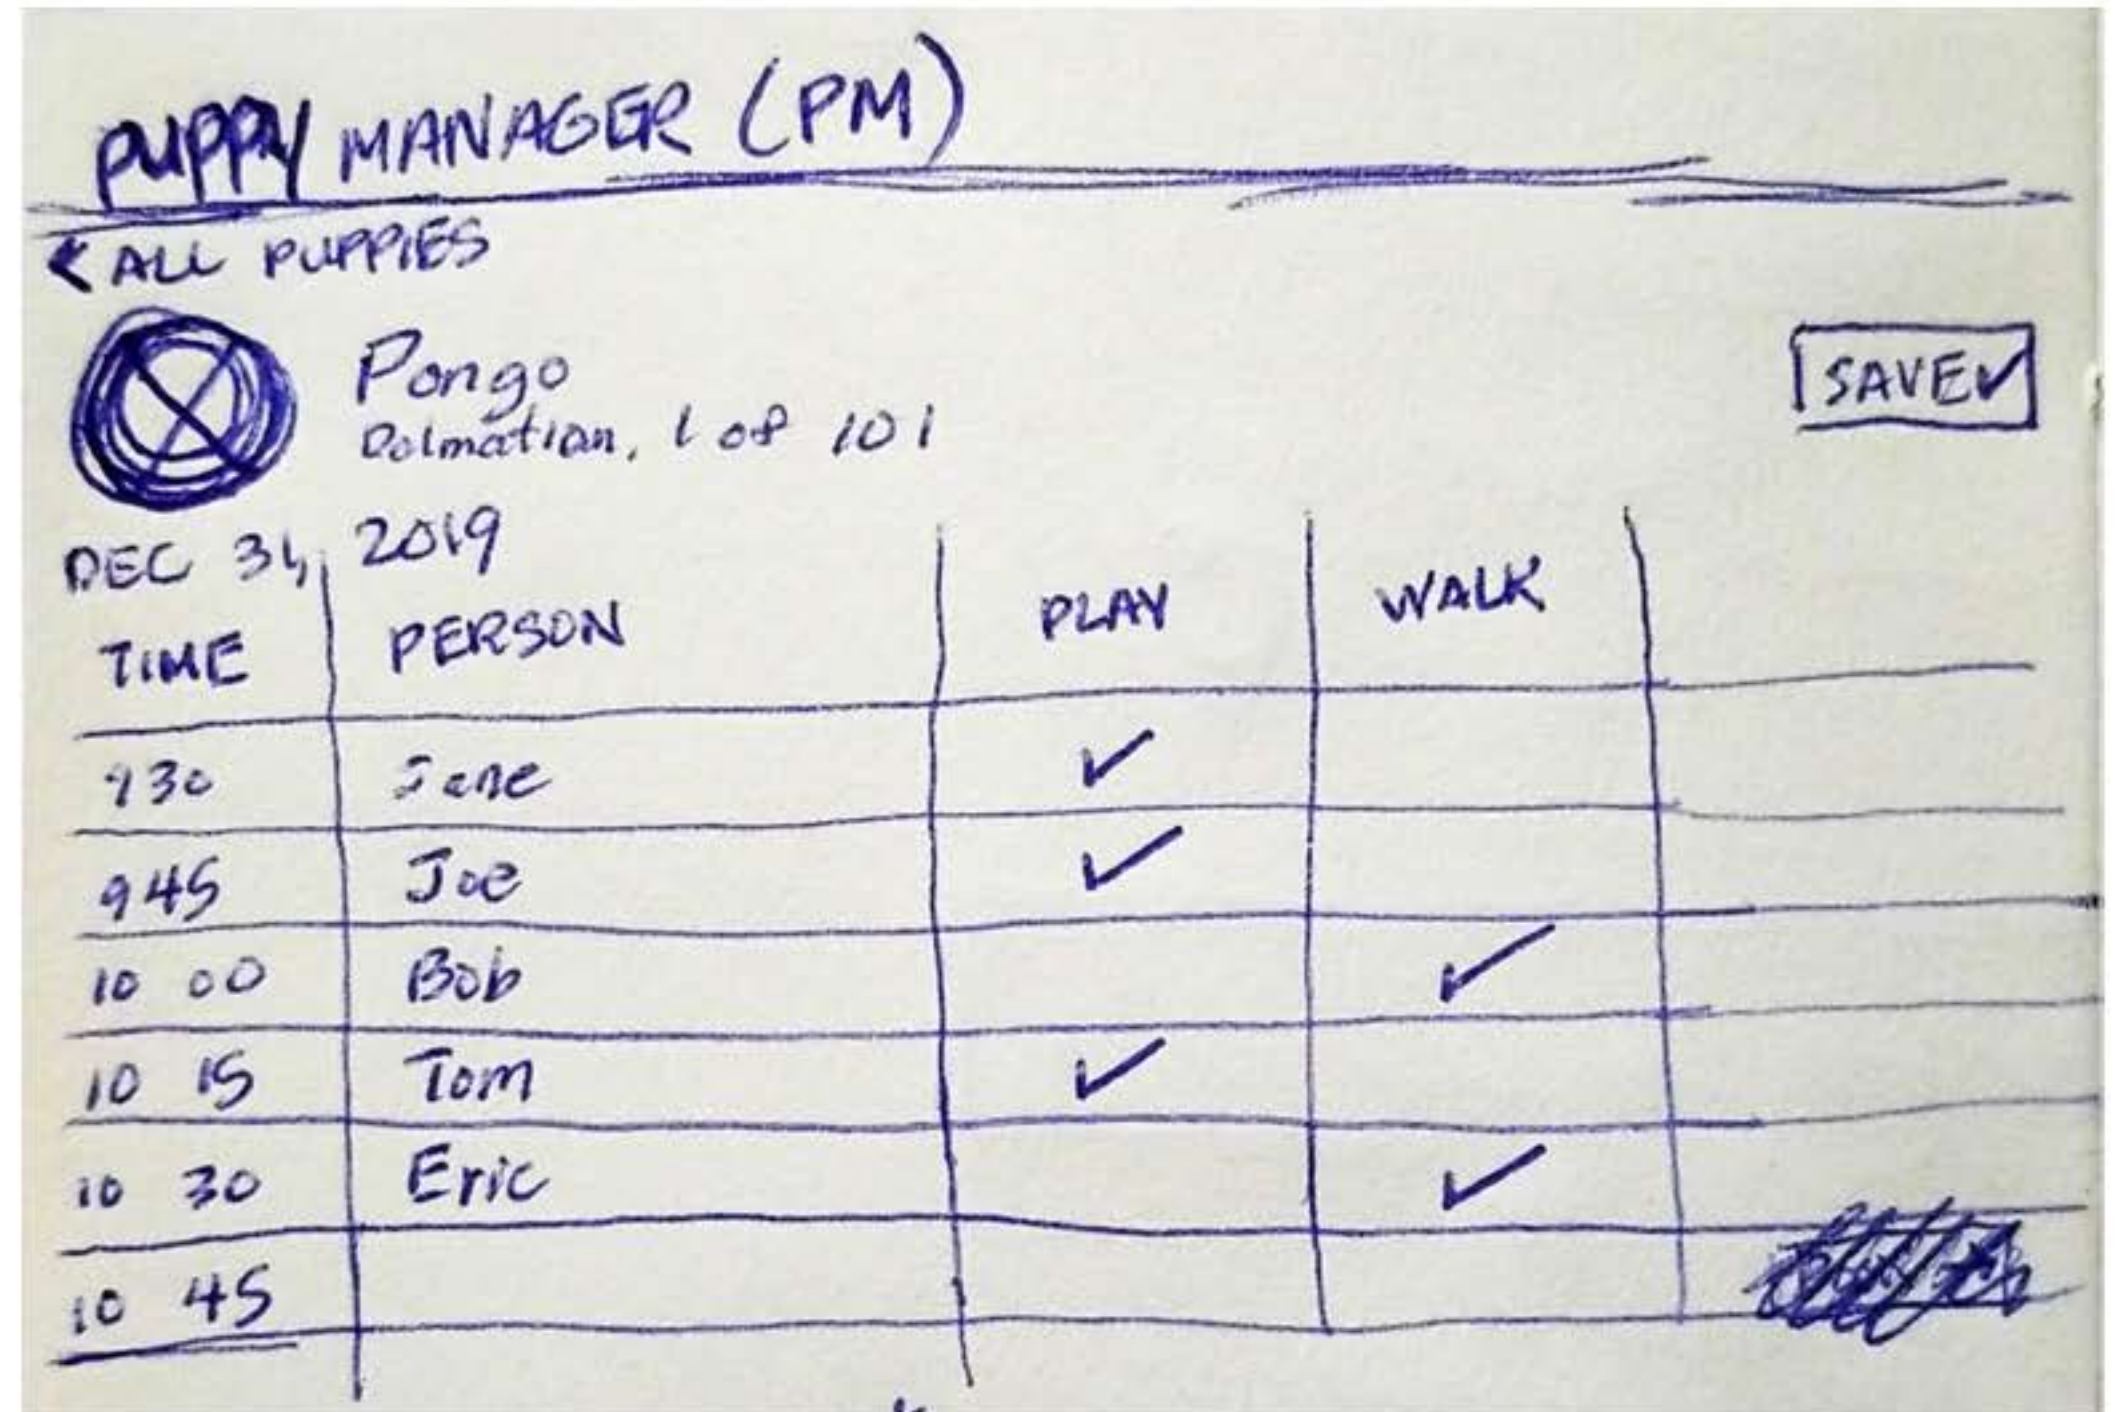 PUPPY MANAGER (PM)
< ALL PUPPIES
Pongo
SAVE ✓
Dalmatian, 1 of 101
DEC 31, 2019
TIME PERSON PLAY WALK
930 Jane ✓
945 Joe ✓
10 00 Bob ✓
10 15 Tom ✓
10 30 Eric ✓
10 45